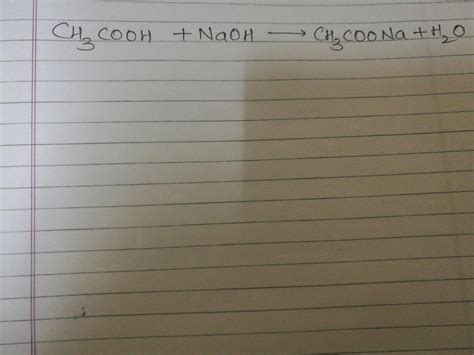 CH₃COOH + NaOH ⟶ CH₃COONa + H₂O